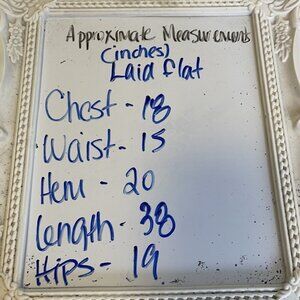 Approximate Measurements
(inches)
Laid flat
Chest - 18
Waist - 15
Hem - 20
Length - 38
Hips - 19